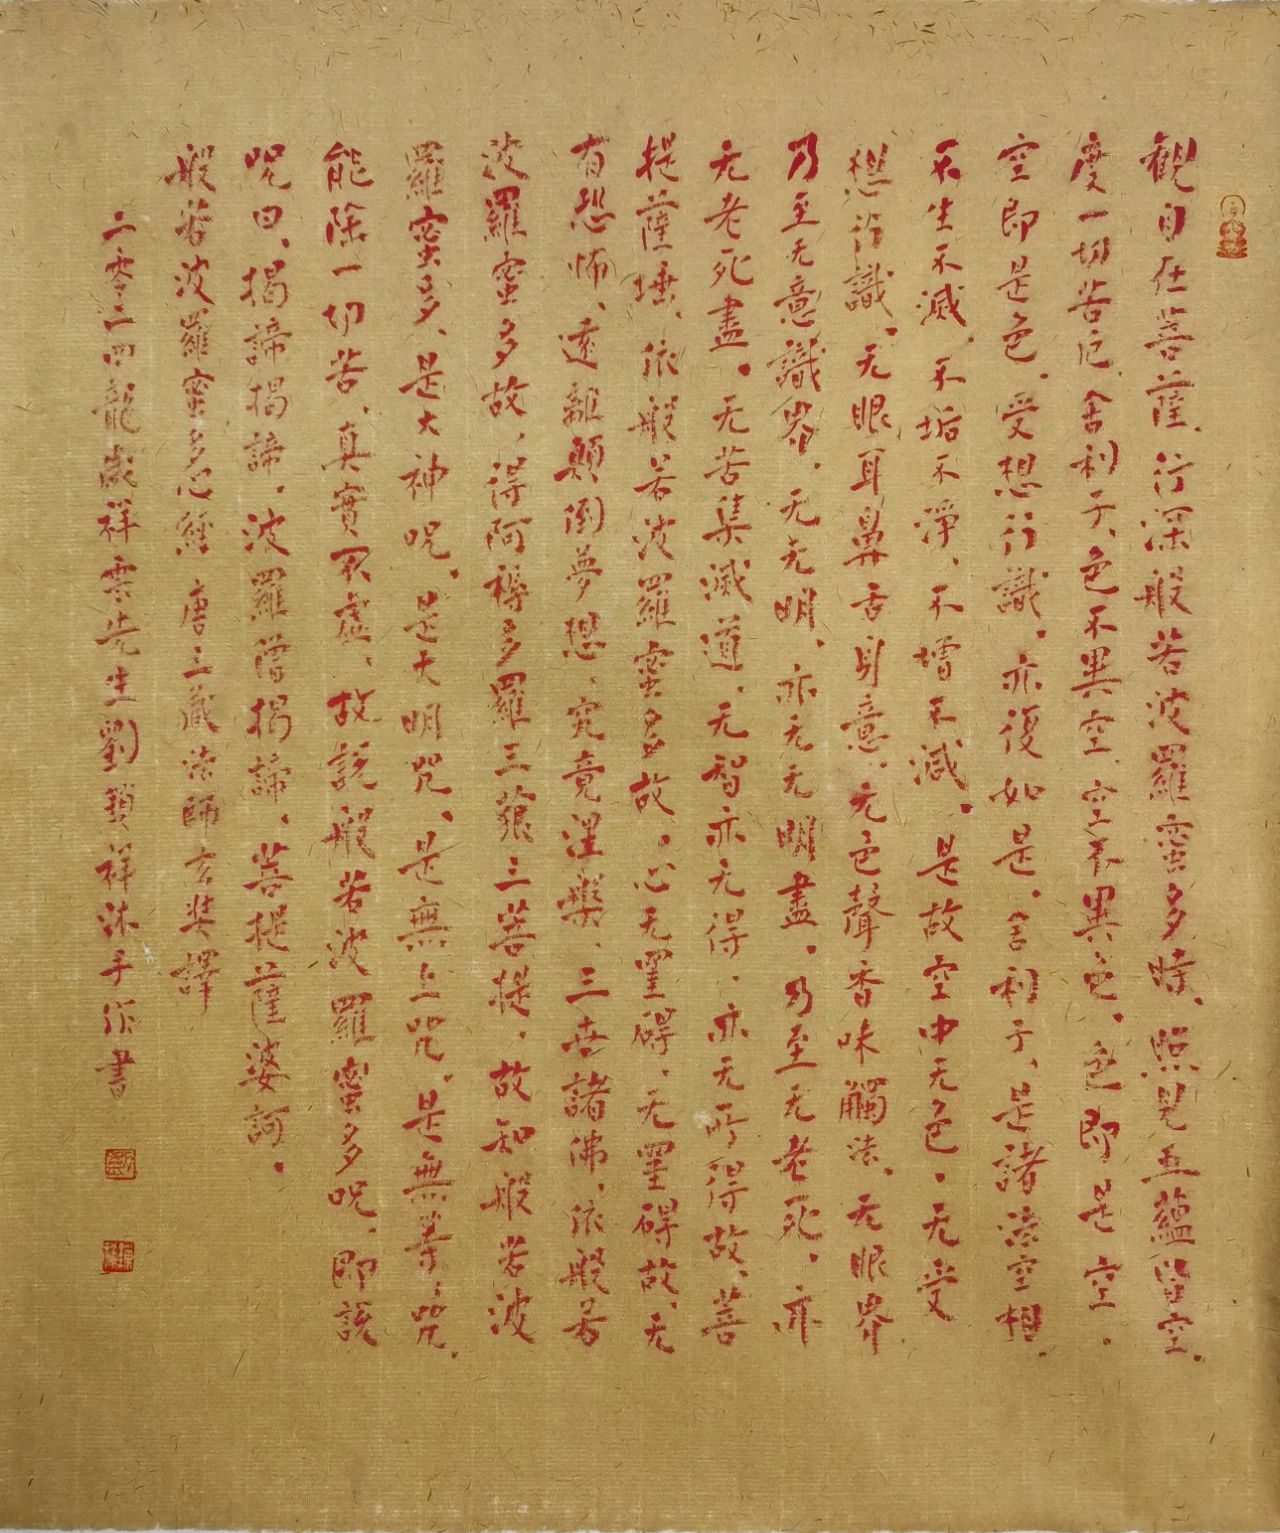 觀自在菩薩、行深般若波羅蜜多時、照見五蘊皆空、
度一切苦厄、舍利子、色不異空、空不異色、色即是空、
空即是色、受想行識、亦復如是、舍利子、是諸法空相、
不生不滅、不垢不淨、不增不減、是故空中无色、无受
想行識、无眼耳鼻舌身意、无色聲香味觸法、无眼界
乃至无意識界、无无明、亦无无明盡、乃至无老死、亦
无老死盡、无苦集滅道、无智亦无得、亦无所得故、菩
提薩埵、依般若波羅蜜多故、心无罣碍、无罣碍故、无
有恐怖、遠離顛倒夢想、究竟涅槃、三世諸佛、依般若
波羅蜜多故、得阿耨多羅三藐三菩提、故知般若波
羅蜜多、是大神咒、是大明咒、是無上咒、是無等咒、
能除一切苦、真實不虛、故説般若波羅蜜多呪、即説
呪曰、揭諦揭諦、波羅僧揭諦、菩提薩婆訶、
般若波羅蜜多心經 唐三藏法師玄奘譯
二零二四龍歲祥雲先生劉祥沐手作書